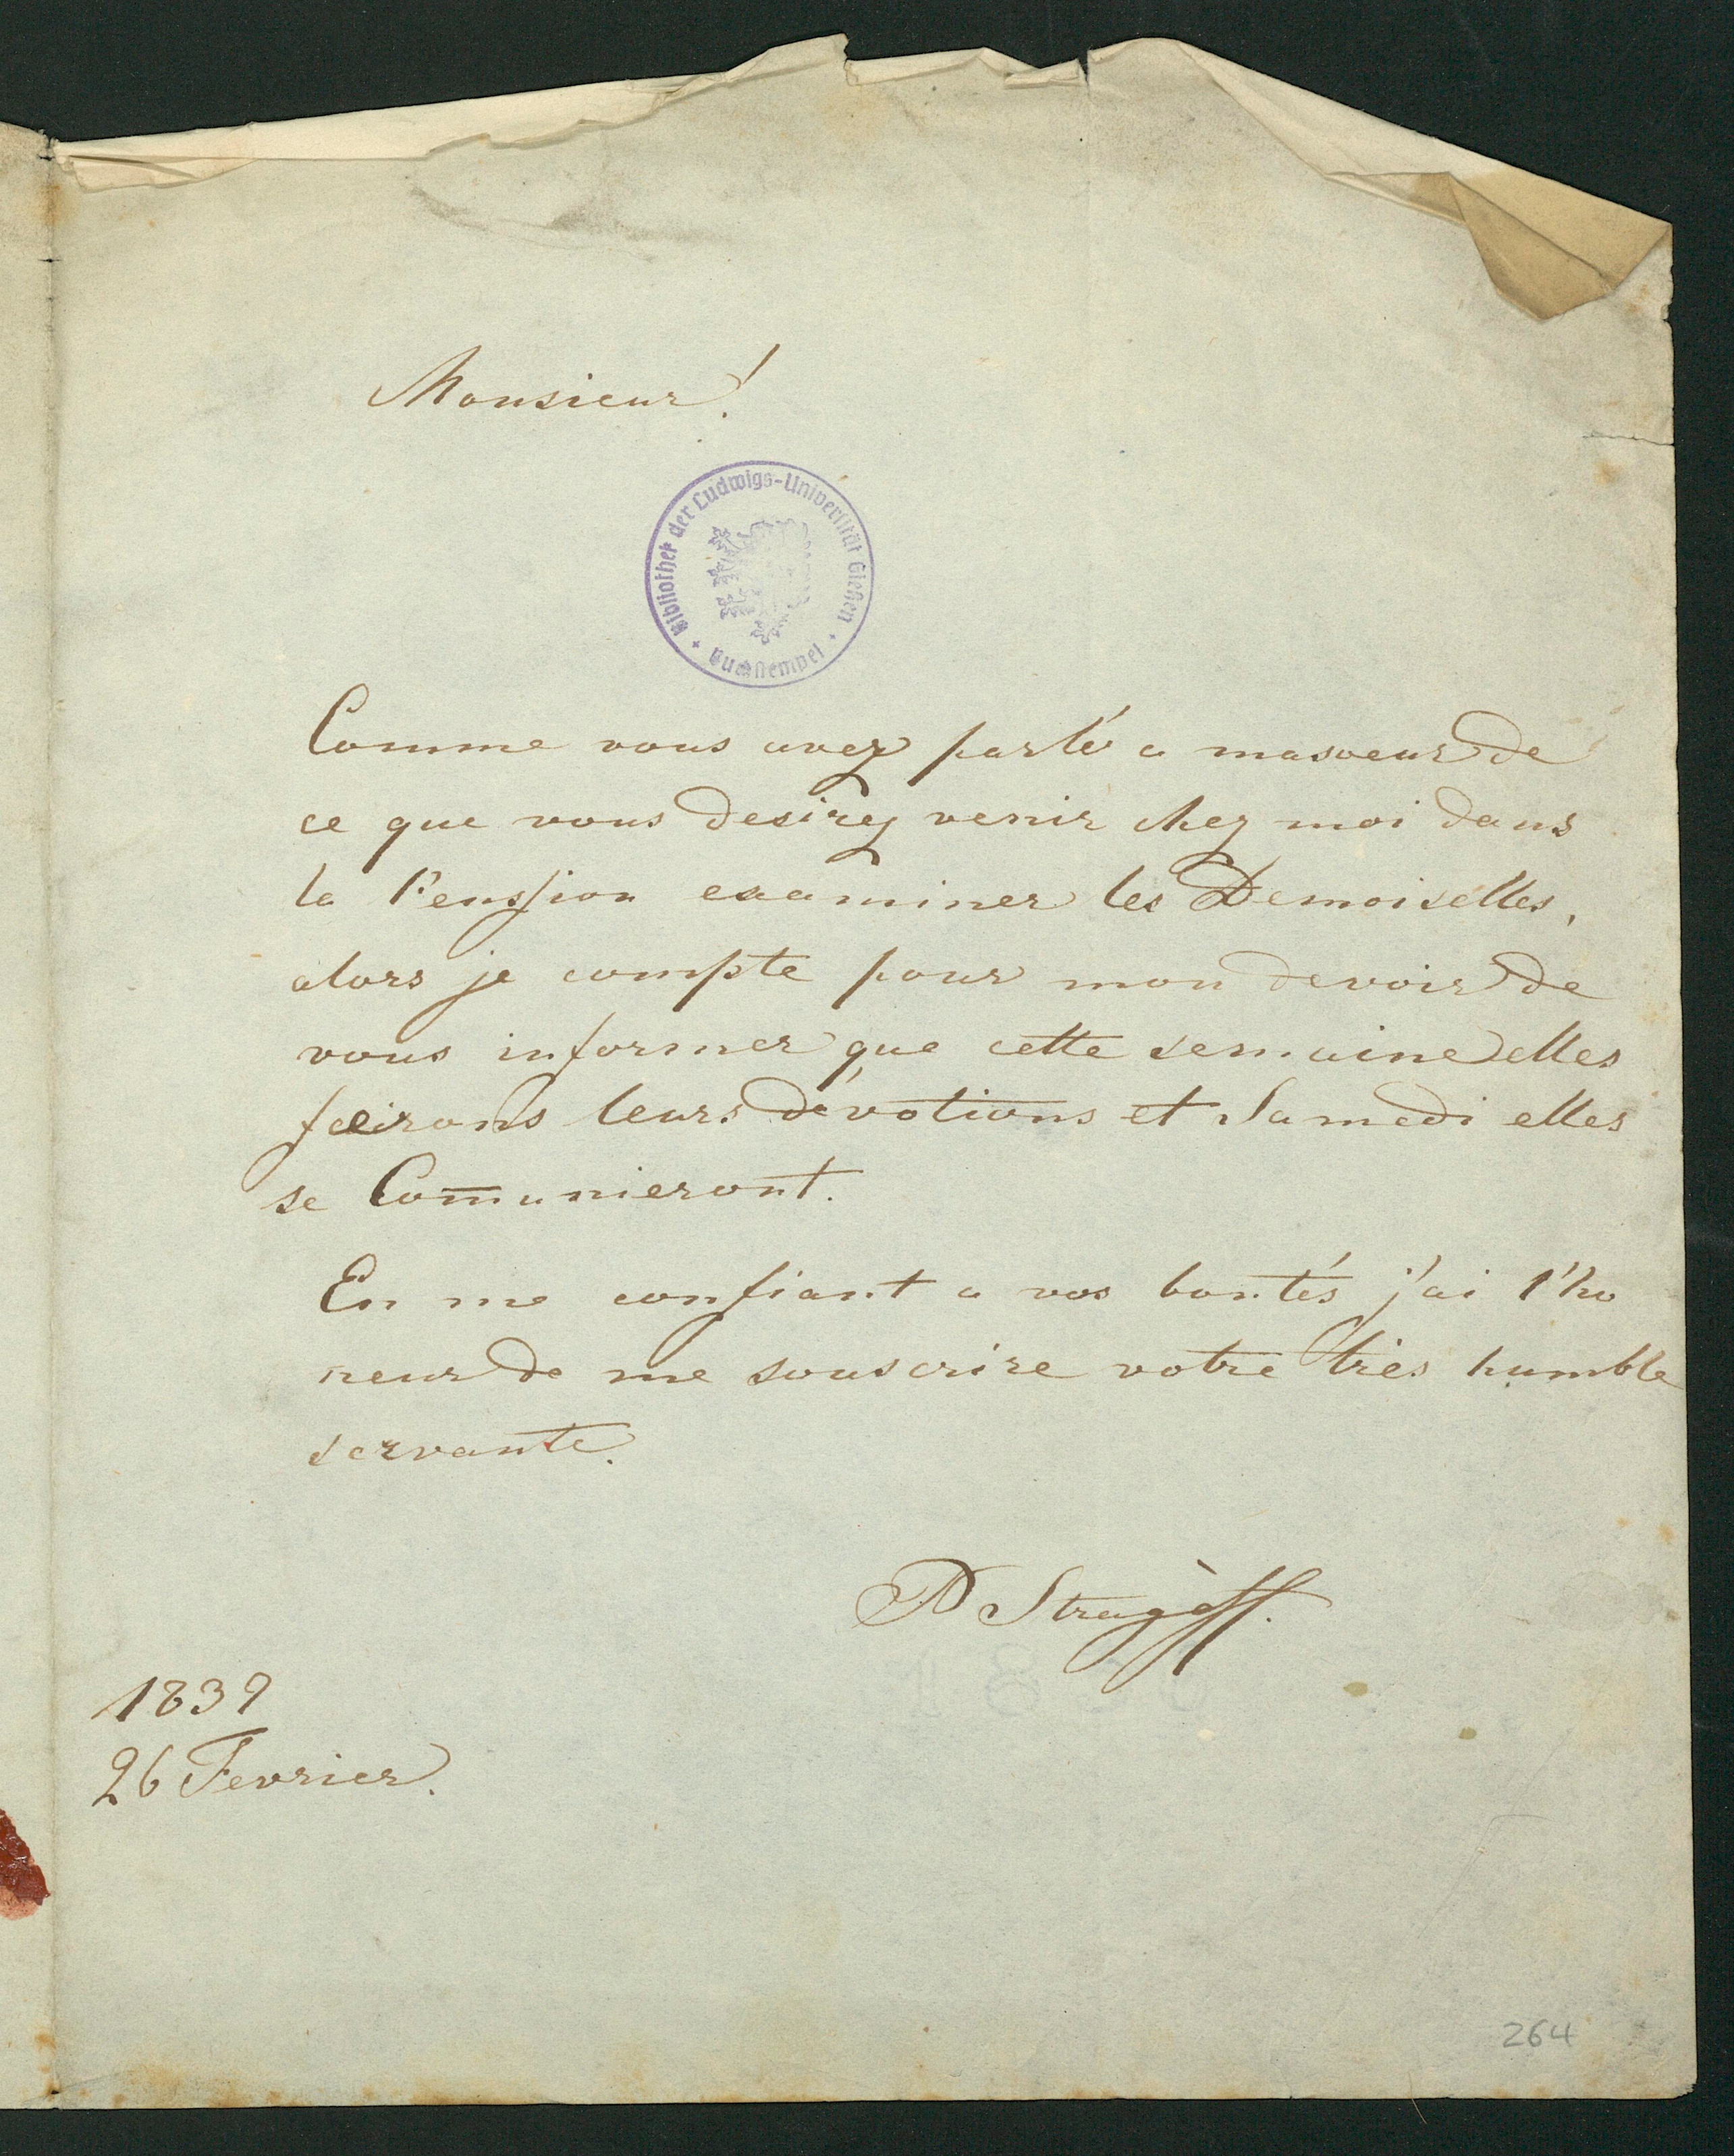 Monsieur!
Bibliothek der Ludwigs-Universität Gießen
Buchstempel
Comme vous avez parlé a masoeur de
ce que vous desirez venir chez moi dans
la Penssion examiner les Demoiselles,
alors je compte pour mon devoir de
vous informer que cette semaine elles
feirons leurs dévotions et Samedi elles
se Com̅unieront.
En me confiant a vos bontés j'ai l'ho
neur de me souscrire votre tres humble
servante.
1839
26 Fevrier.
264